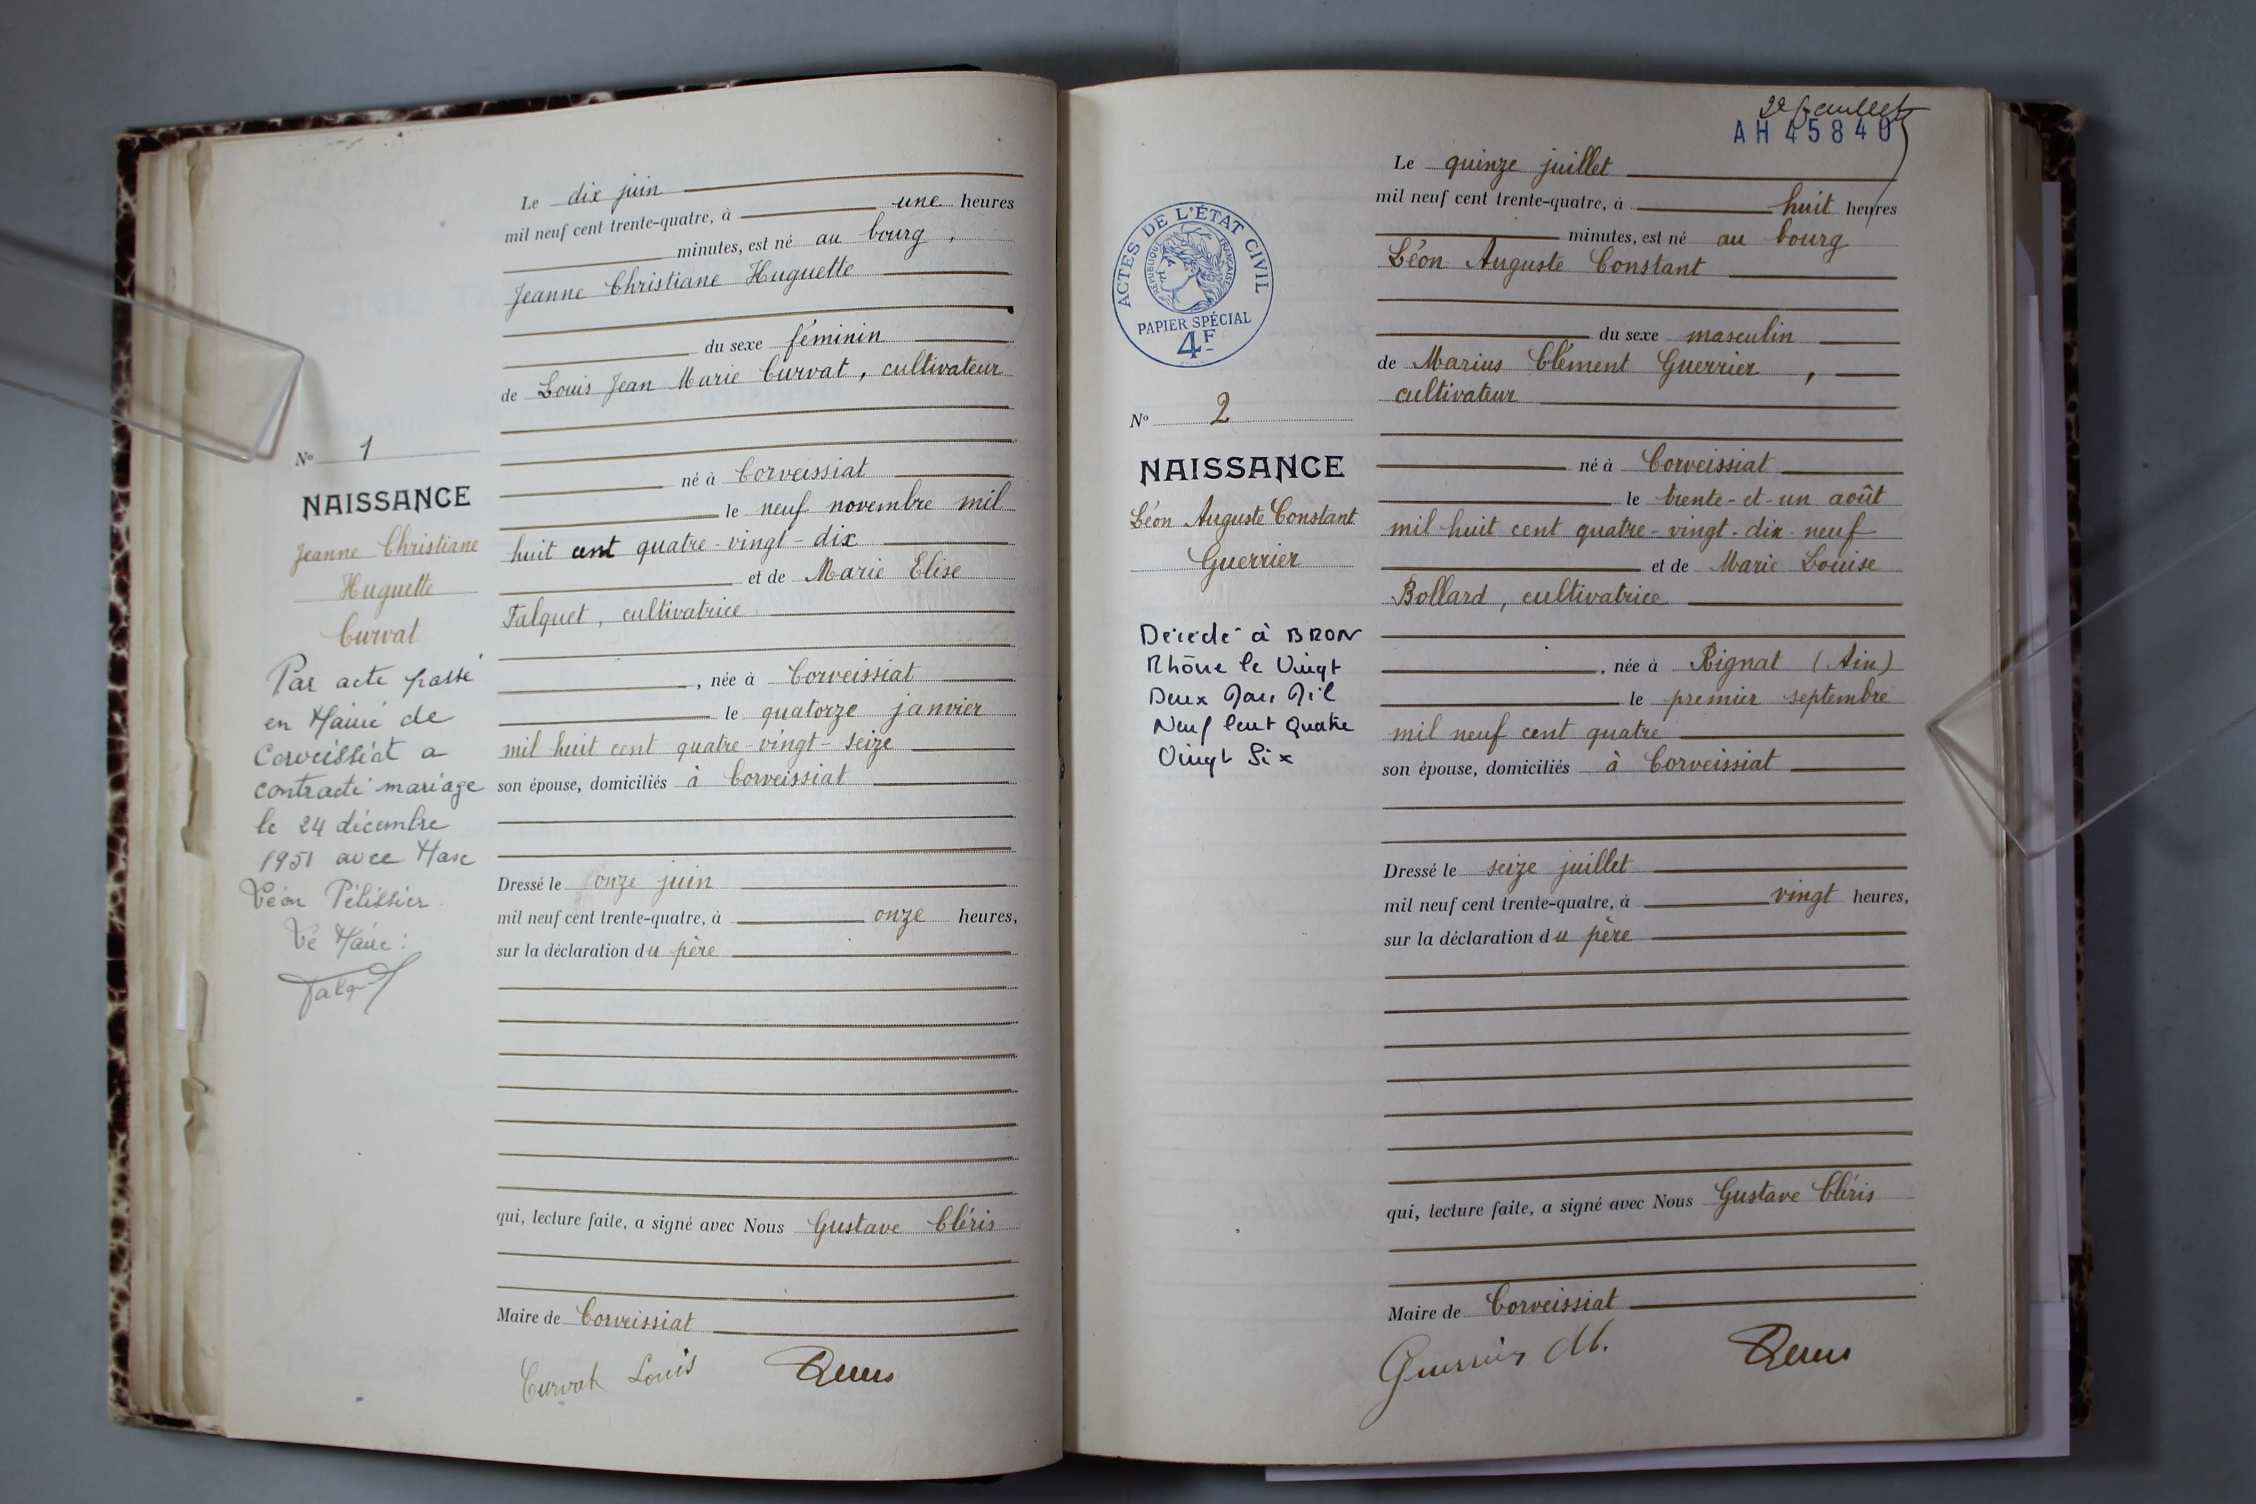 Le dix juin
mil neuf cent trente-quatre, à une heures
minutes, est né au bourg,
Jeanne Christiane Huguette
du sexe féminin
de Louis Jean Marie Curvat, cultivateur
né à Corveissiat
le neuf novembre mil
huit cent quatre-vingt-dix
et de Marie Elise
Falquet, cultivatrice
, née à Corveissiat
le quatorze janvier
mil huit cent quatre-vingt-seize
son épouse, domiciliés à Corveissiat
Dressé le onze juin
mil neuf cent trente-quatre, à onze heures,
sur la déclaration du père
qui, lecture faite, a signé avec Nous Gustave Cléris
Maire de Corveissiat
Curvat Louis
No 1
NAISSANCE
Jeanne Christiane
Huguette
Curvat
Par acte passé
en Mairie de
Corveissiat a
contracté mariage
le 24 décembre
1951 avec Marc
Léon Pélissier.
Le Maire:
Falq
2e feuillet
AH 45840
Le quinze juillet
mil neuf cent trente-quatre, à huit heures
minutes, est né au bourg
Léon Auguste Constant
du sexe masculin
de Marius Clément Guerrier,
cultivateur
né à Corveissiat
le trente-et-un août
mil huit cent quatre-vingt-dix-neuf
et de Marie Louise
Bollard, cultivatrice
, née à Rignat (Ain)
le premier septembre
mil neuf cent quatre
son épouse, domiciliés à Corveissiat
Dressé le seize juillet
mil neuf cent trente-quatre, à vingt heures,
sur la déclaration du père
qui, lecture faite, a signé avec Nous Gustave Cléris
Maire de Corveissiat
Guerrier M.
ACTES DE L'ÉTAT CIVIL
RÉPUBLIQUE FRANÇAISE
PAPIER SPÉCIAL
4F
No 2
NAISSANCE
Léon Auguste Constant
Guerrier
Décédé à BRON
Rhône le Vingt
Deux Mars Mil
Neuf Cent Quatre
Vingt Six